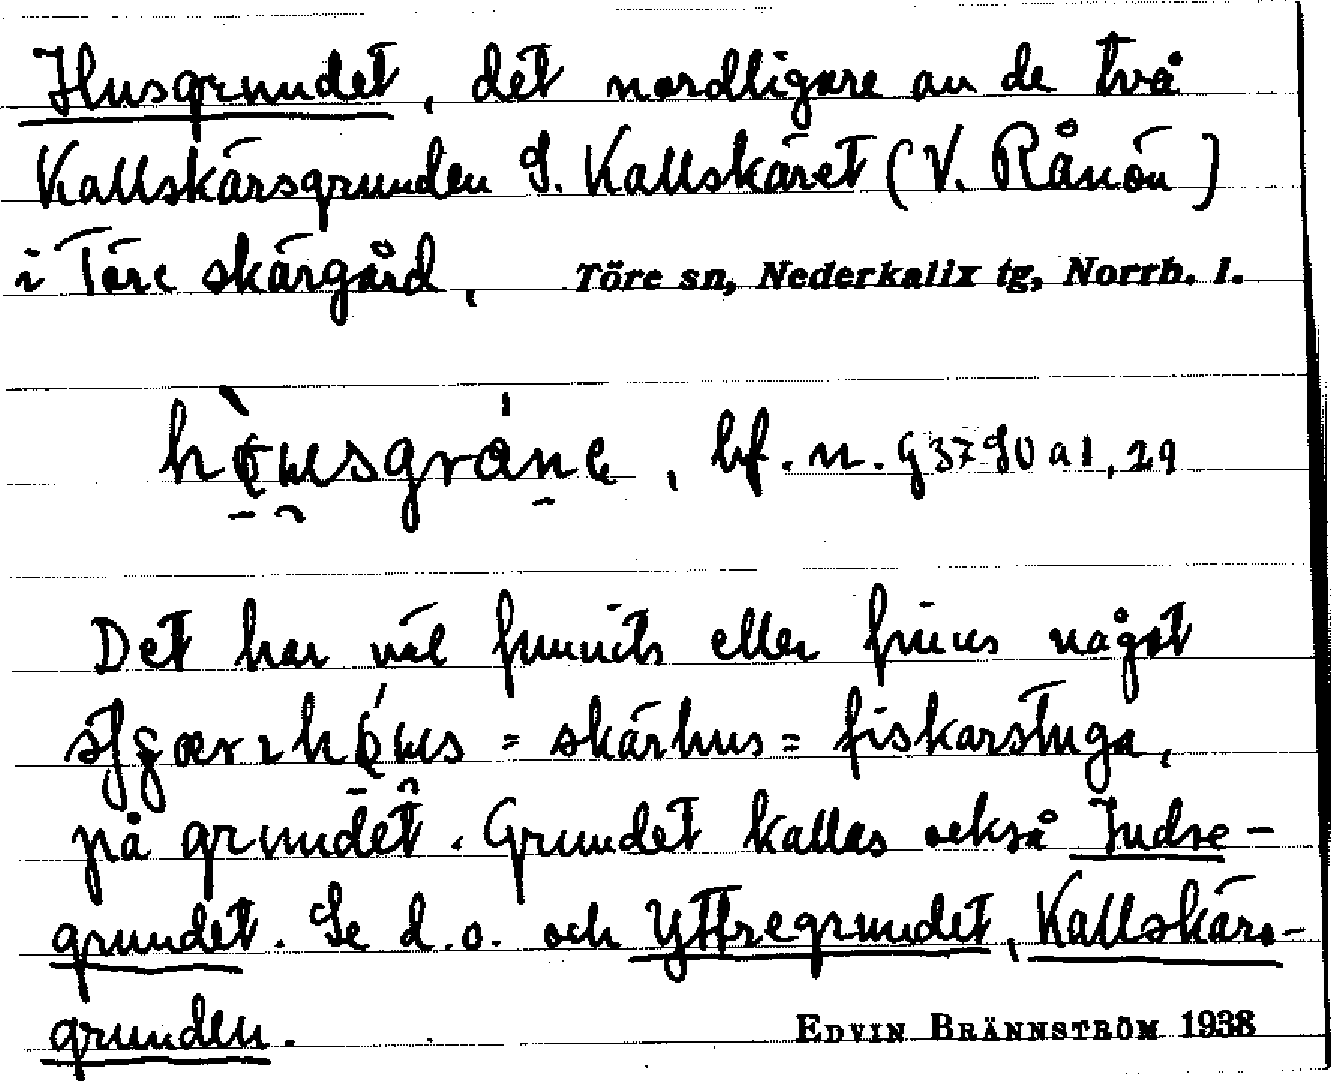 Husgrundet, det nordligare av de två
Kallskärsgrunden S. Kallskäret (V. Rånön)
i Töre skärgård, Töre sn, Nederkalix tg, Norrb. l.
bf. n. G 37 90 a 1, 29
Det har väl funnits eller finns något
= skärhus = fiskarstuga,
på grundet. Grundet kallas också Indre-
grundet. Se d.o. och Yttregrundet, Kallskärs-
grunden. EDVIN BRÄNNSTRÖM 1938